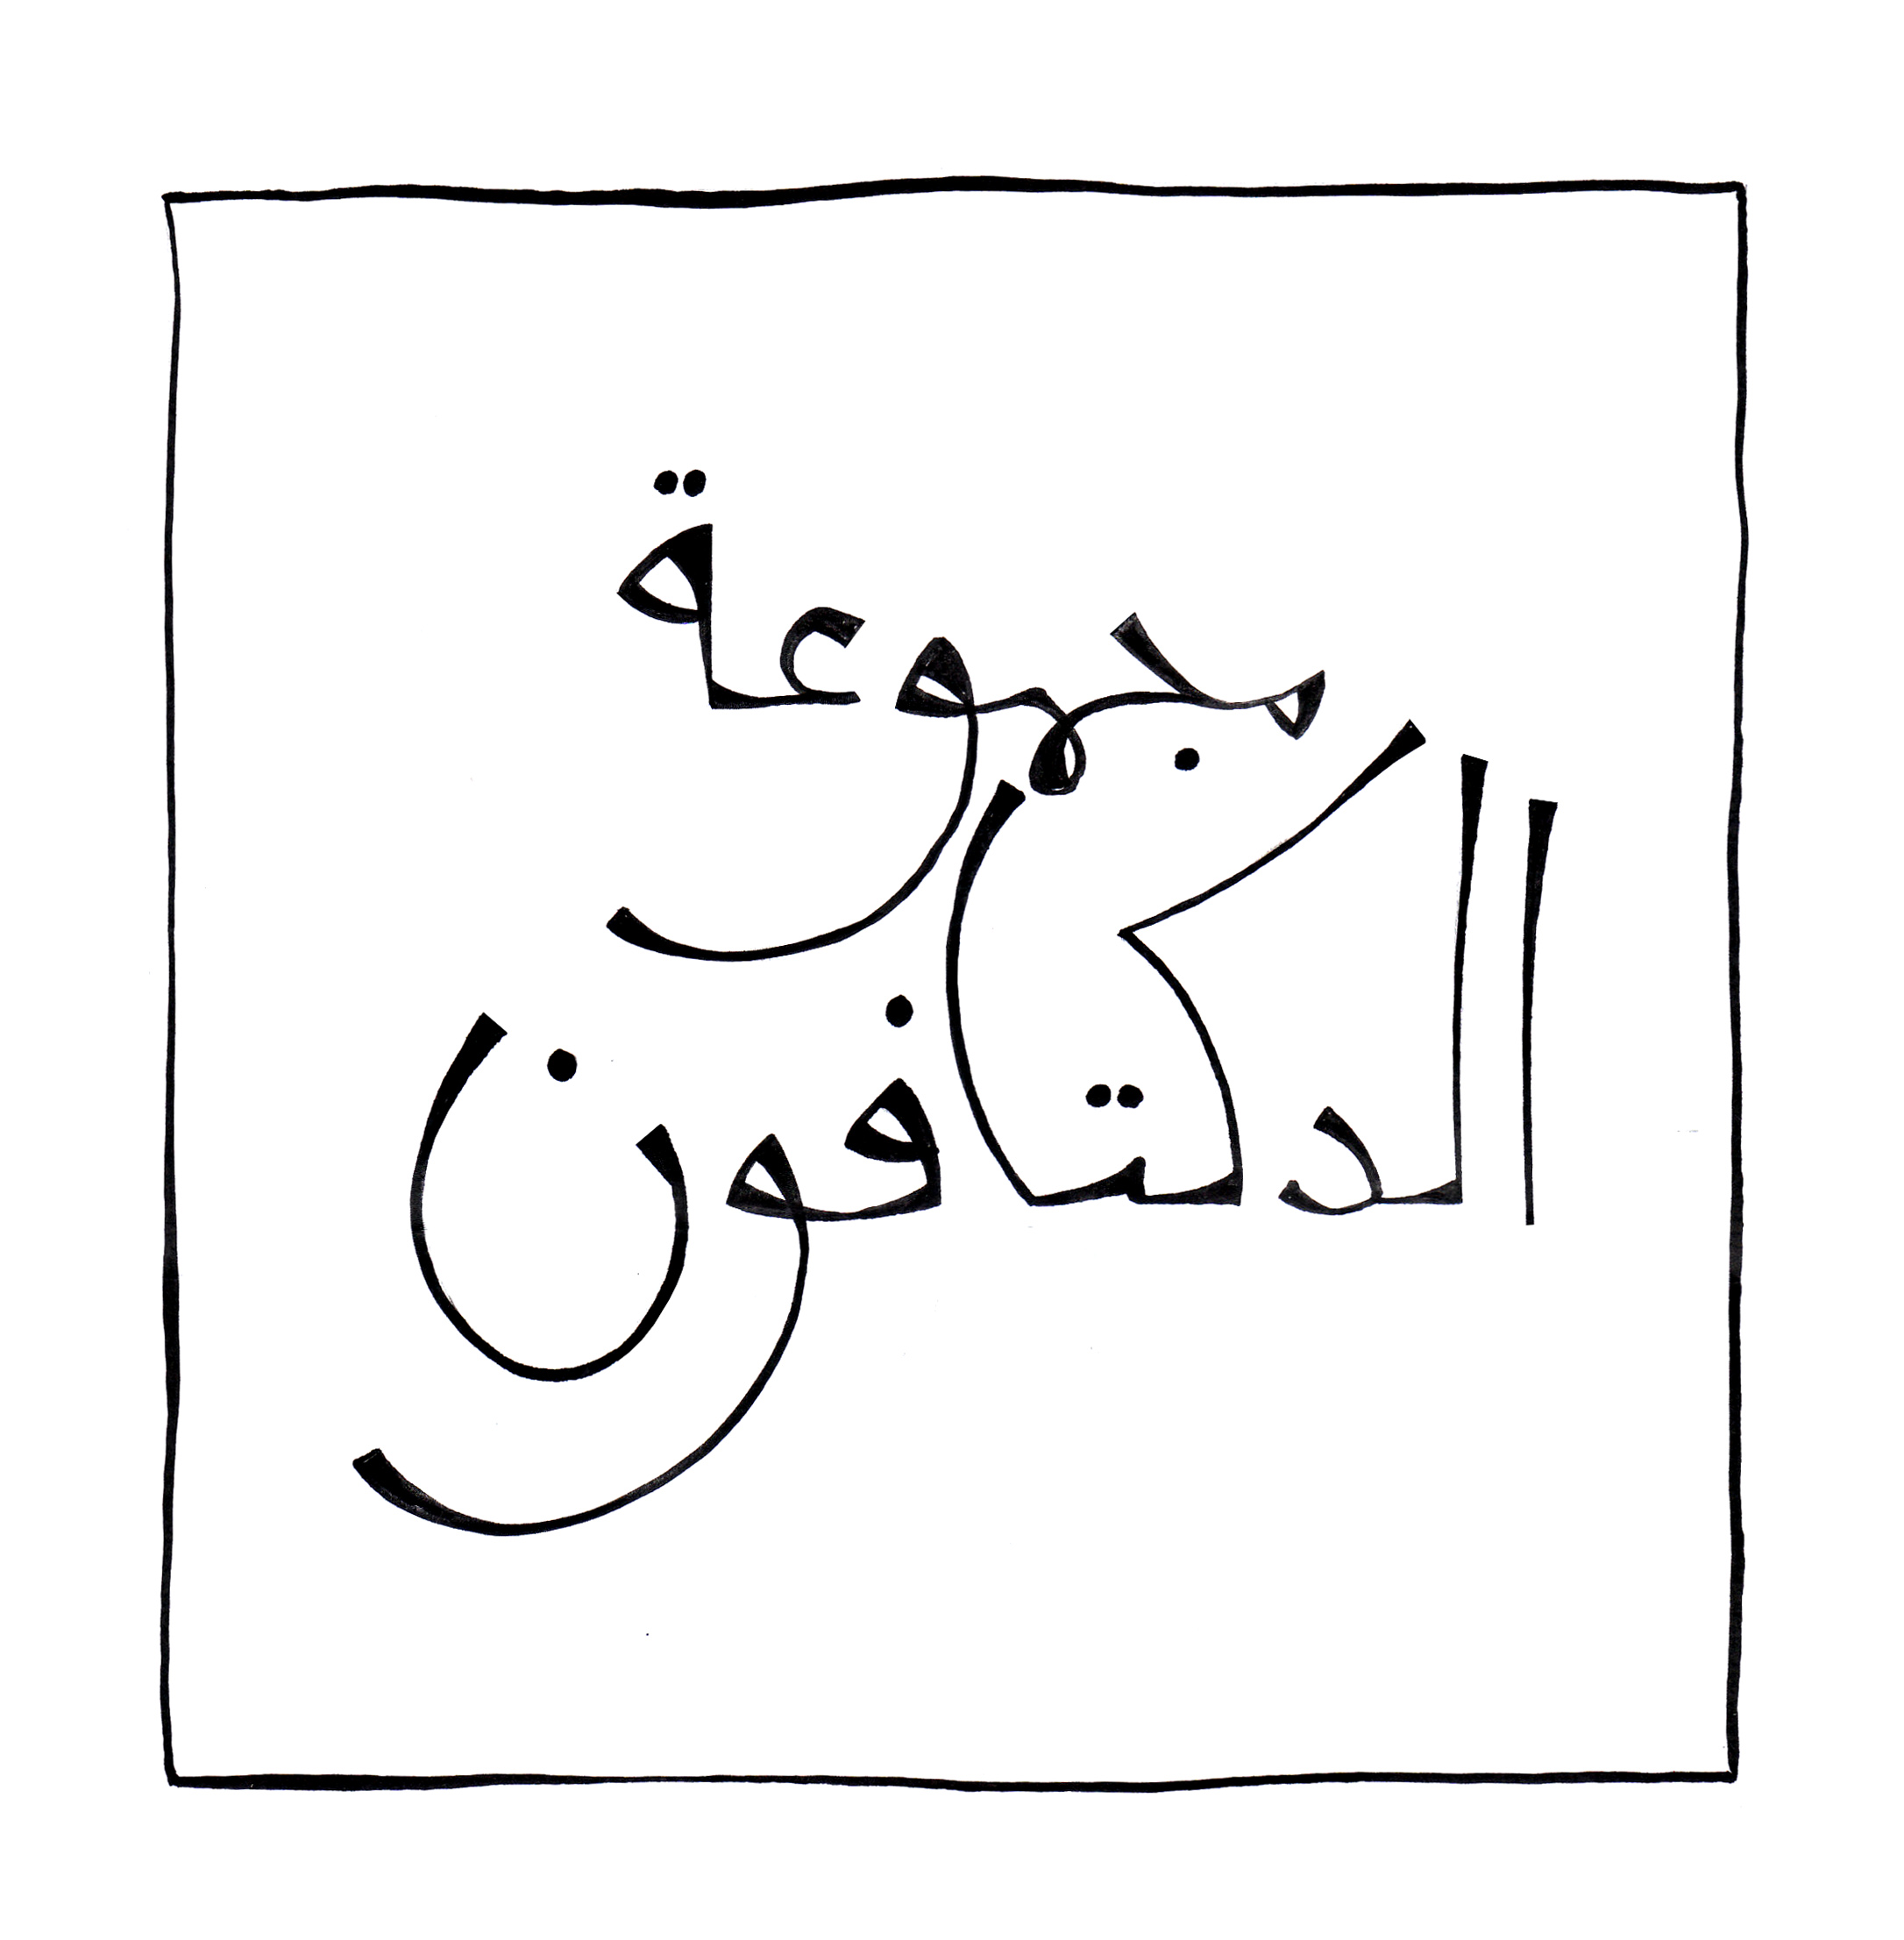 مجموعة
الدكتافون